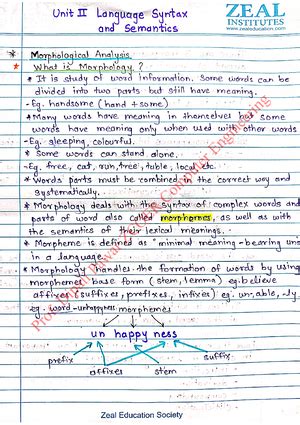 Unit II Language Syntax
and Semantics
ZEAL
INSTITUTES
www.zealeducation.com
* Morphological Analysis
* What is Morphology?
* It is study of word information. Some words can be
divided into two parts but still have meaning.
- Eg. handsome (hand + some)
* Many words have meaning in themselves but some
words have meaning only when used with other words
- Eg. sleeping, colourful.
* Some words can stand alone.
- Eg. free, cat, run, tree, table, local, etc.
* Words parts must be combined in the correct way and
systematically.
* Morphology deals with the syntax of complex words and
parts of word also called morphemes, as well as with
the semantics of their lexical meanings.
* Morpheme is defined as "minimal meaning-bearing unit
in a language.
* Morphology handles the formation of words by using
morphemes base form (stem, lemma) eg. believe
affixes(suffixes, prefixes, infixes) eg. un, able, ly.
eg. word - unhappyness morphemes
un happy ness
prefix
affixes
stem
suffix
Zeal Education Society